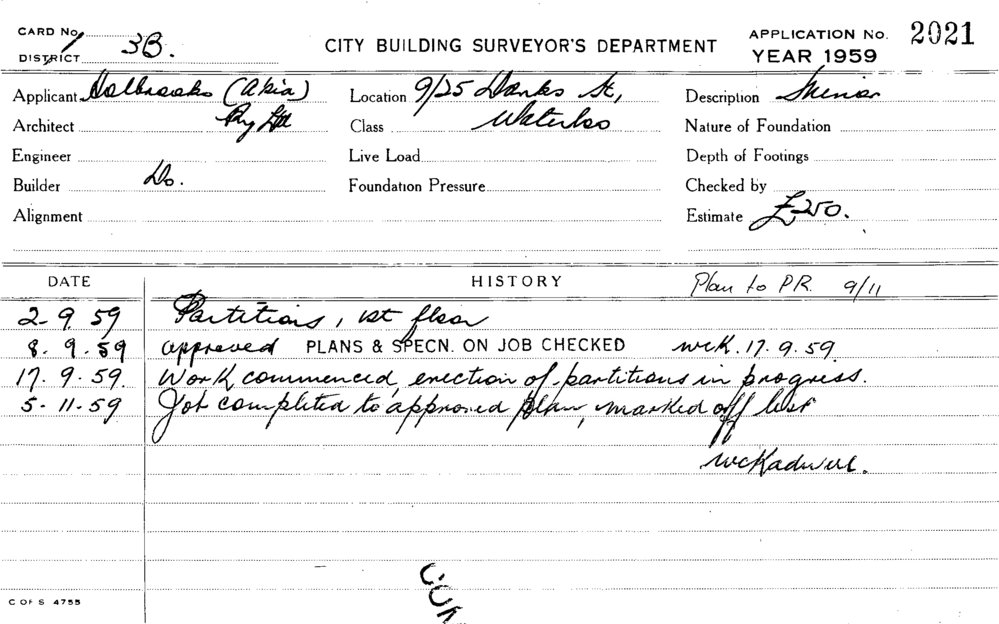 CARD No.
DISTRICT 3B.
CITY BUILDING SURVEYOR'S DEPARTMENT
APPLICATION No. 2021
YEAR 1959
Applicant Holbrooks (Asia) Location 9/25 Danks St, Description Minor
Architect Pty Ltd Class Waterloo Nature of Foundation
Engineer Live Load Depth of Footings
Builder Do. Foundation Pressure Checked by
Alignment Estimate £250.
DATE HISTORY Plan to P.R. 9/11
2-9-59 Partitions, 1st floor
8.9.59 approved PLANS & SPECN. ON JOB CHECKED wck. 17.9.59.
17.9.59. Work commenced, erection of partitions in progress.
5-11-59 Job completed to approved plan, marked off list
COM
C OF S 4755